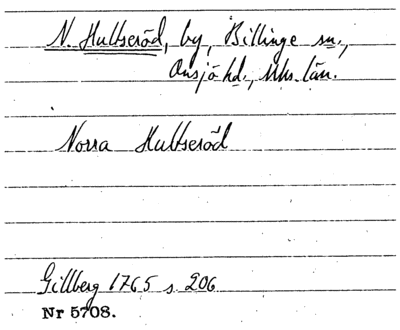 N. Hultseröd, by, Billinge sn.,
Onsjö hd., Mhs. län.
Norra Hultseröd
Gillberg 1765 s. 206
Nr 5708.